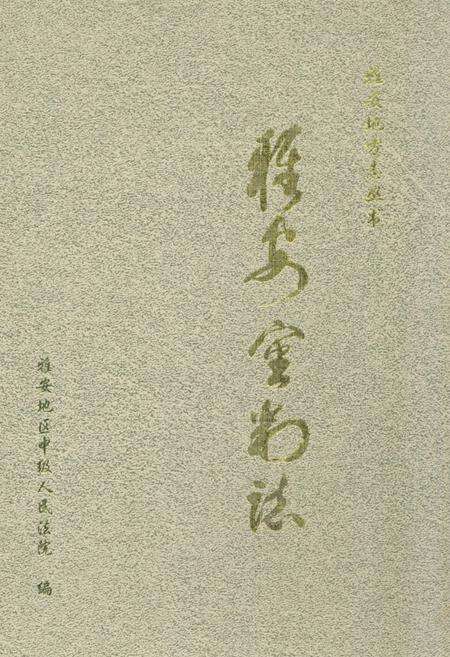 雅安地方志丛书
雅安审判志
雅安地区中级人民法院 编